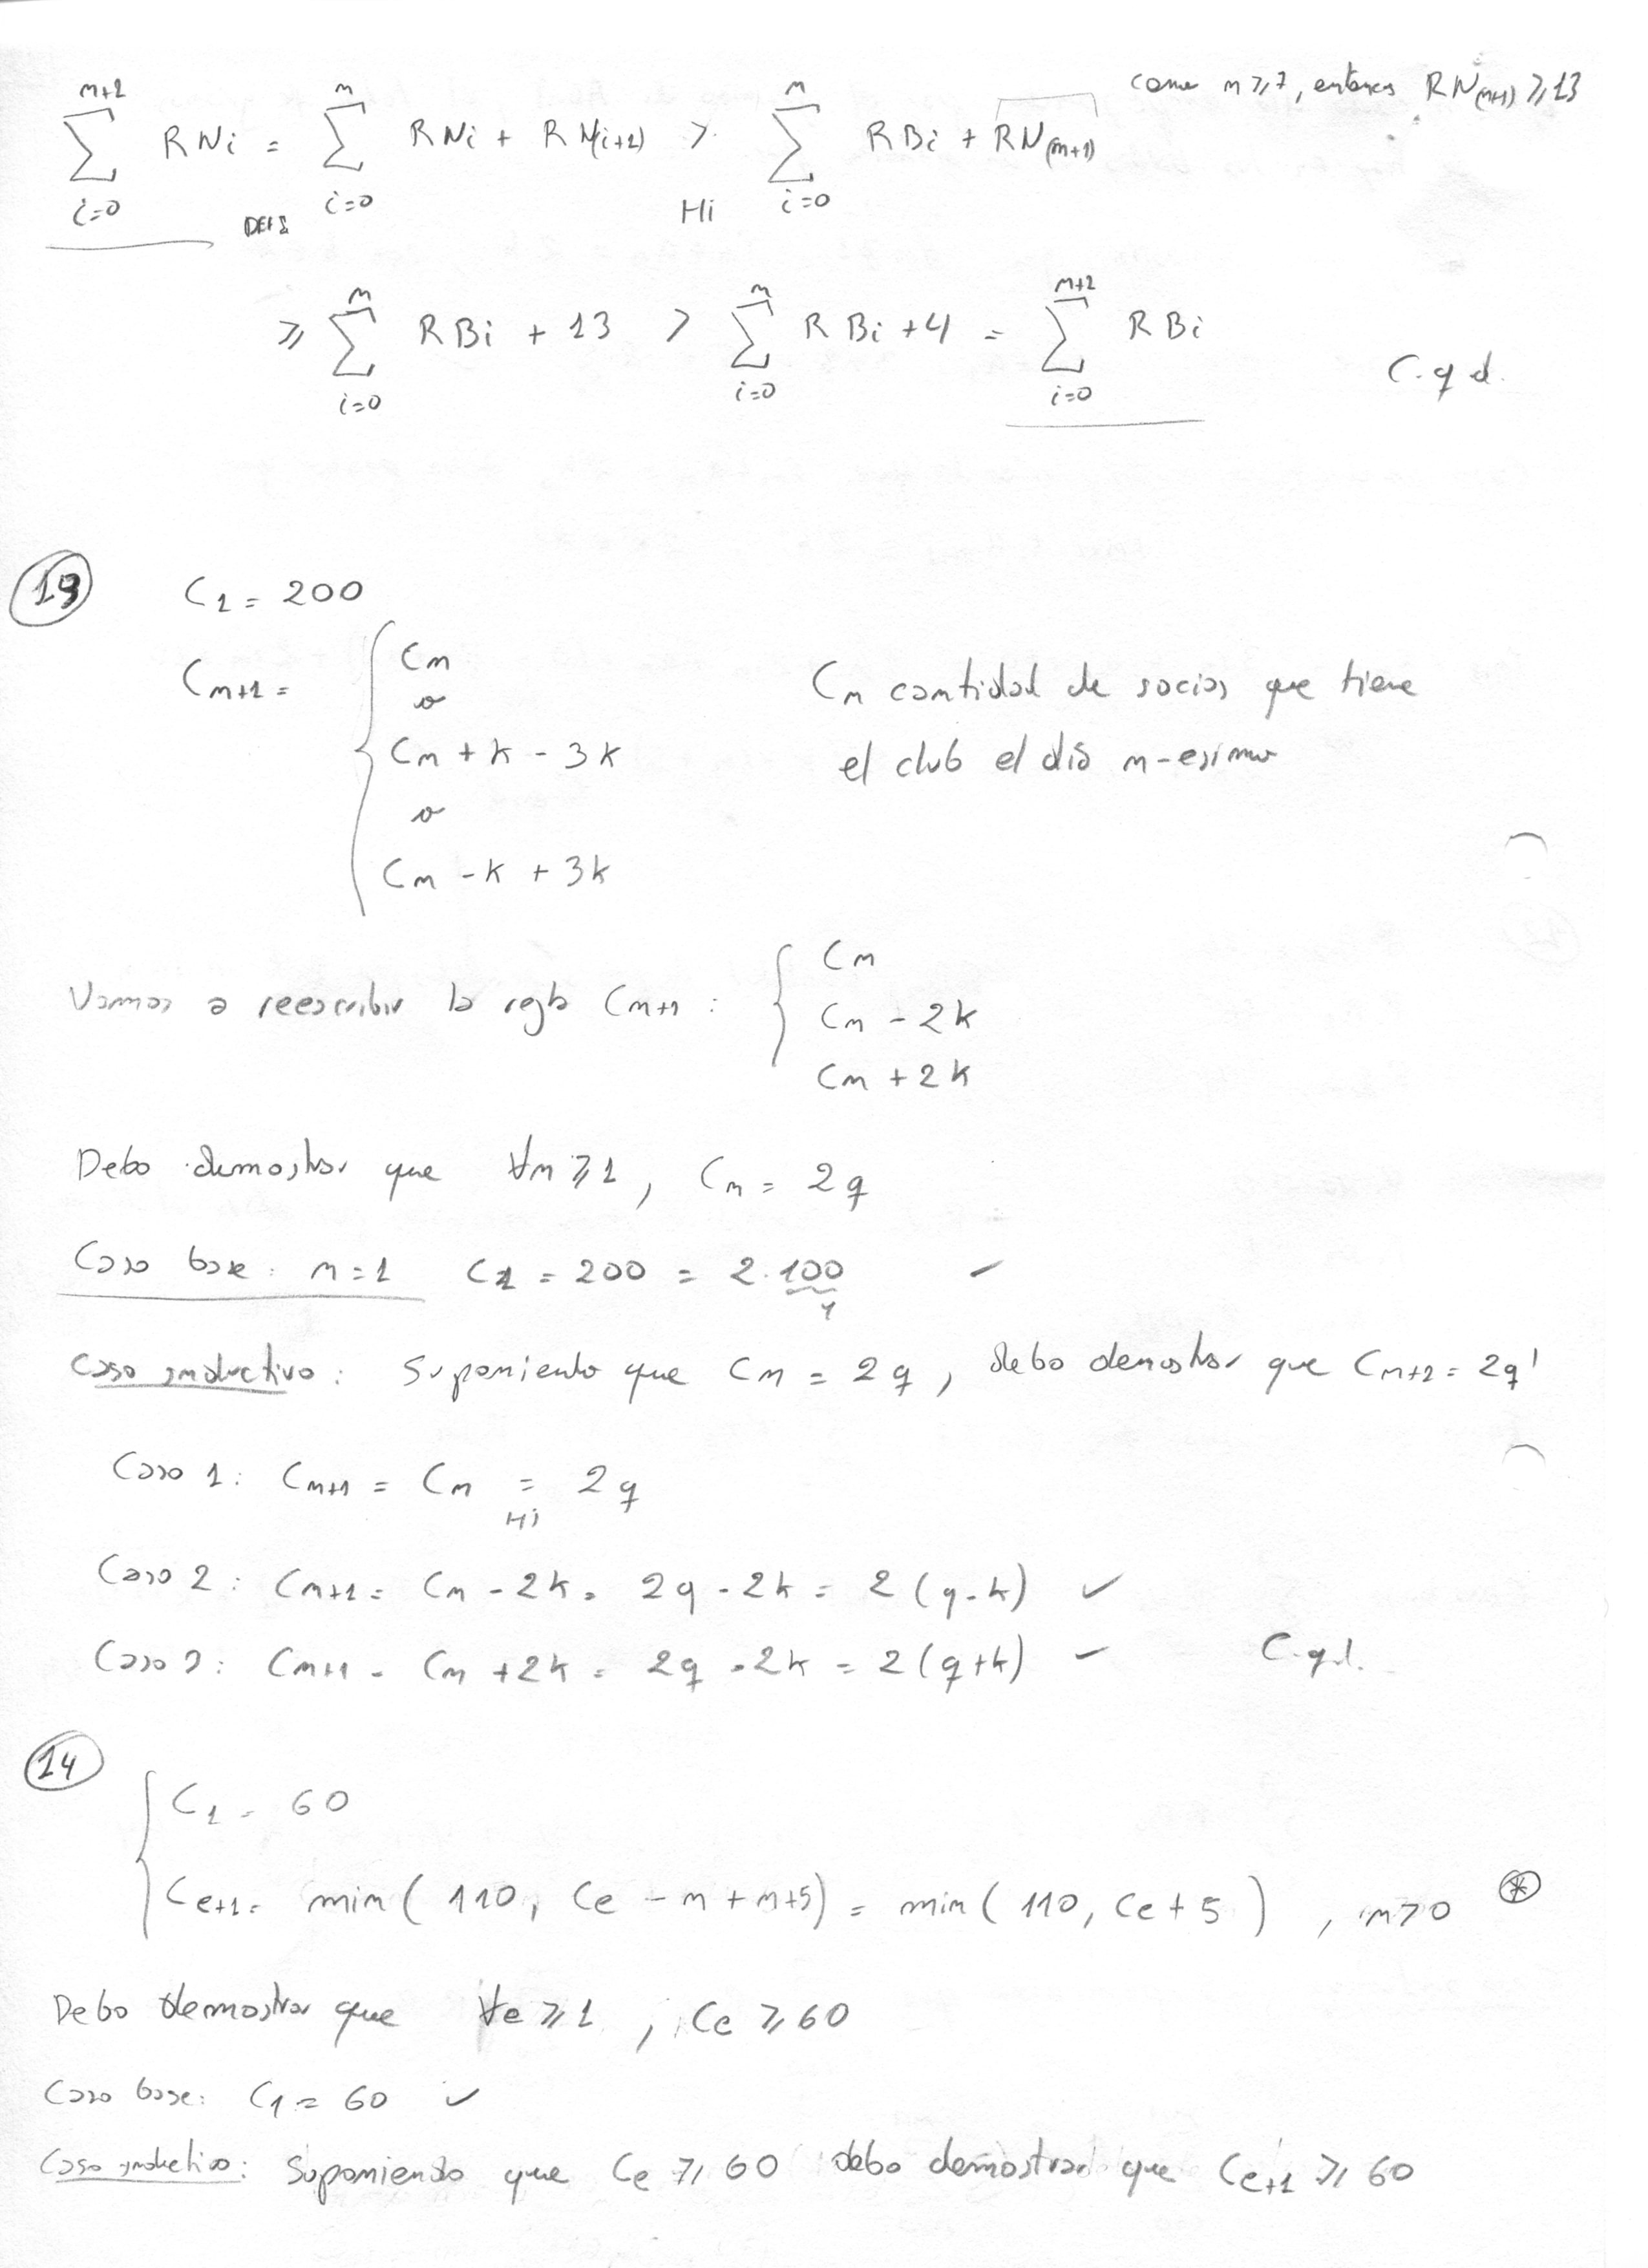 como n ≥ 7, entonces RN(n+1) ≥ 13
n+1 Σ i=0 RNi = DEF Σ n Σ i=0 RNi + RN(i+1) > Hi n Σ i=0 RBi + RN(n+1)
≥ n Σ i=0 RBi + 13 > n Σ i=0 RBi + 4 = n+1 Σ i=0 RBi
C.q.d.
13 C1 = 200
Cn+1 = { Cn
o
Cn + k - 3k
o
Cn - k + 3k
Cn cantidad de socios que tiene
el club el día n-esimo
Vamos a reescribir la regla Cn+1 : { Cn
Cn - 2k
Cn + 2k
Debo demostrar que ∀n ≥ 1, Cn = 2q
Caso base: n=1 C1 = 200 = 2.100 ✓
q
Caso inductivo: Suponiendo que Cn = 2q, debo demostrar que Cn+1 = 2q'
Caso 1: Cn+1 = Cn = 2q
Hi
Caso 2: Cn+1 = Cn - 2k = 2q - 2k = 2(q-k) ✓
Caso 3: Cn+1 = Cn + 2k = 2q + 2k = 2(q+k) ✓ C.q.d.
14
{ C1 = 60
Ce+1 = min(110, Ce - n + n+5) = min(110, Ce+5) , n>0 *
Debo demostrar que ∀e ≥ 1, Ce ≥ 60
Caso base: C1 = 60 ✓
Caso inductivo: Suponiendo que Ce ≥ 60 debo demostrar que Ce+1 ≥ 60